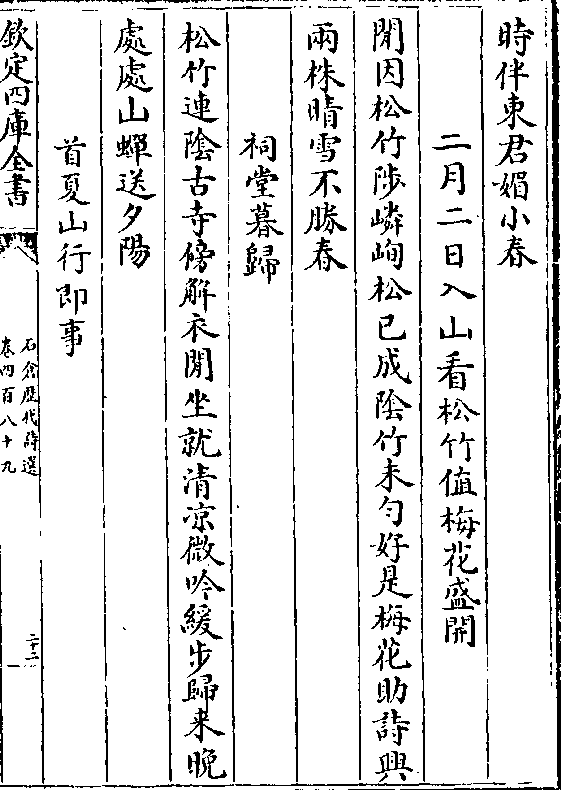 時伴東君媚小春
二月二日入山看松竹值梅花盛開
閒因松竹陟嶙峋松已成陰竹未勻好是梅花助詩興
兩株晴雪不勝春
祠堂暮歸
松竹連陰古寺傍解衣閒坐就清凉微吟緩步歸来晩
處處山蟬送夕陽
首夏山行即事
欽定四庫全書
石倉歴代詩選
卷四百八十九
二十二